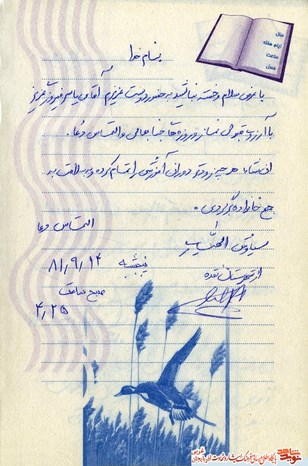 سال
ایام هفته
ساعت
فصل
بنام خدا
با عرض سلام و خسته نباشید به حضور دوست عزیزم آقای یاسر فیروزی عزیز
با آرزوی قبولی نماز و روزه‌ها جنابعالی و التماس دعا.
انشاءالله هر چه زودتر دوران آموزشی را تمام کرده و به سلامت به
جمع خانواده برگردی.
التماس دعا
پنجشنبه
۸۱,۹,۱۴
صبح ساعت
۴,۲۵